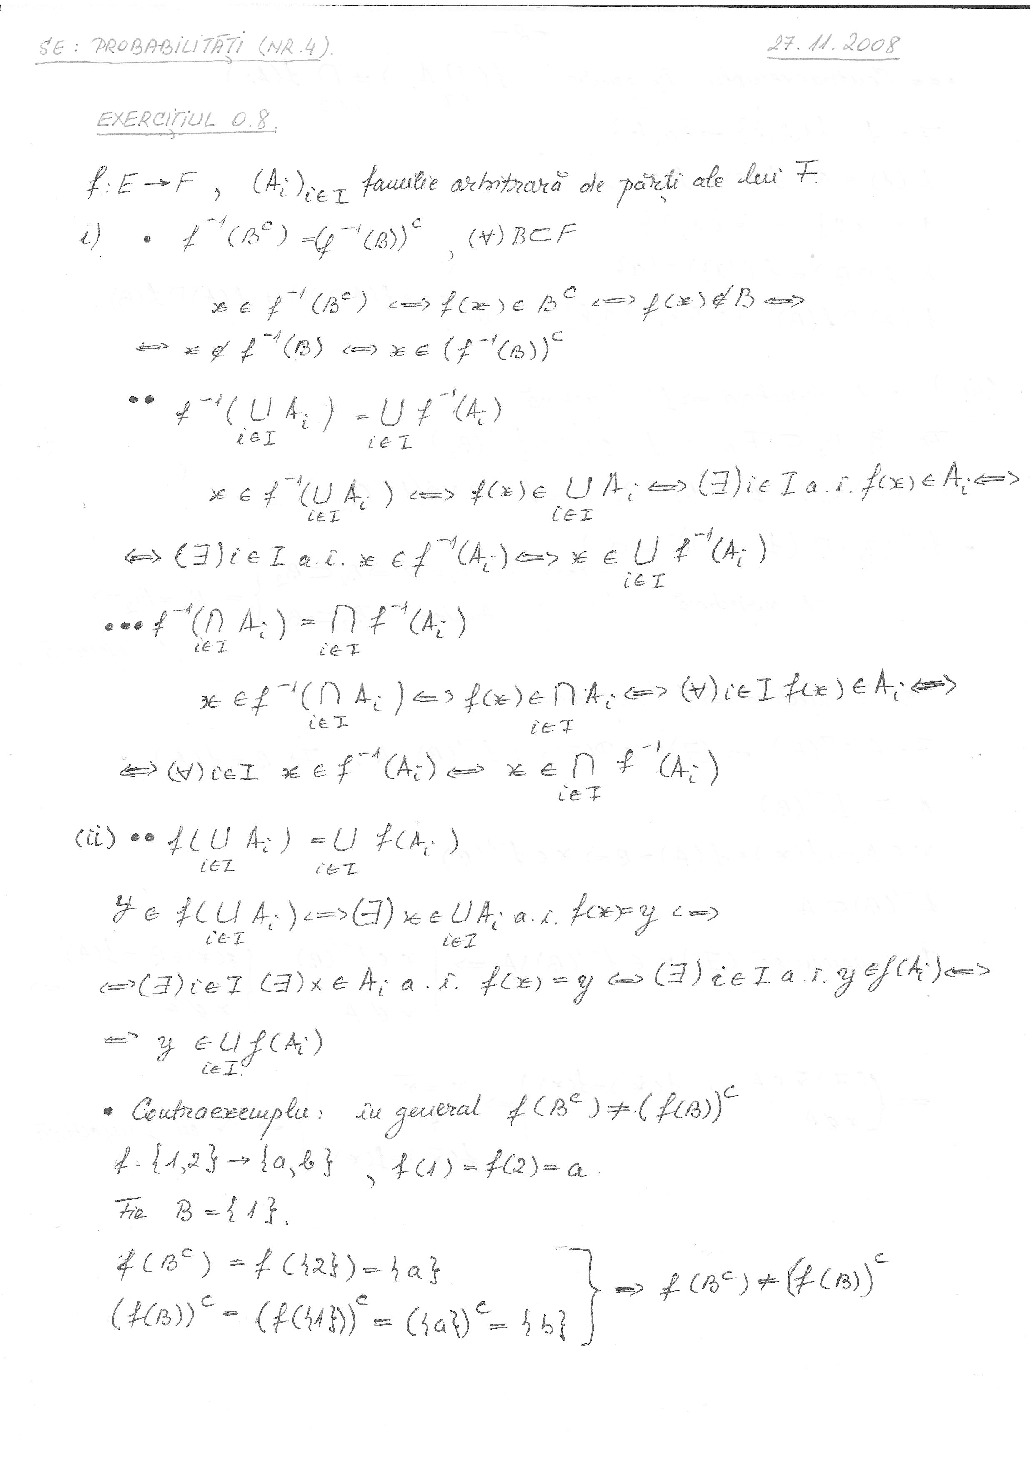 SE: PROBABILITĂȚI (NR.4). 27.11.2008
EXERCIȚIUL 0.8.
f: E → F, (A_i)_{i∈I} familie arbitrară de părți ale lui F.
i) • f⁻¹(Bᶜ) = (f⁻¹(B))ᶜ, (∀) B⊂F
x ∈ f⁻¹(Bᶜ) ⟺ f(x) ∈ Bᶜ ⟺ f(x) ∉ B ⟺
⟺ x ∉ f⁻¹(B) ⟺ x ∈ (f⁻¹(B))ᶜ
•• f⁻¹(⋃_{i∈I} A_i) = ⋃_{i∈I} f⁻¹(A_i)
x ∈ f⁻¹(⋃_{i∈I} A_i) ⟺ f(x) ∈ ⋃_{i∈I} A_i ⟺ (∃) i∈I a.î. f(x) ∈ A_i ⟺
⟺ (∃) i∈I a.î. x ∈ f⁻¹(A_i) ⟺ x ∈ ⋃_{i∈I} f⁻¹(A_i)
••• f⁻¹(⋂_{i∈I} A_i) = ⋂_{i∈I} f⁻¹(A_i)
x ∈ f⁻¹(⋂_{i∈I} A_i) ⟺ f(x) ∈ ⋂_{i∈I} A_i ⟺ (∀) i∈I f(x) ∈ A_i ⟺
⟺ (∀) i∈I x ∈ f⁻¹(A_i) ⟺ x ∈ ⋂_{i∈I} f⁻¹(A_i)
(ii) •• f(⋃_{i∈I} A_i) = ⋃_{i∈I} f(A_i)
y ∈ f(⋃_{i∈I} A_i) ⟺ (∃) x ∈ ⋃_{i∈I} A_i a.î. f(x)=y ⟺
⟺ (∃) i∈I (∃) x ∈ A_i a.î. f(x) = y ⟺ (∃) i∈I a.î. y ∈ f(A_i) ⟺
⟹ y ∈ ⋃_{i∈I} f(A_i)
• Contraexemplu: în general f(Bᶜ) ≠ (f(B))ᶜ
f: {1,2} → {a,b}, f(1) = f(2) = a.
Fie B = {1}.
f(Bᶜ) = f({2}) = {a}
(f(B))ᶜ = (f({1}))ᶜ = ({a})ᶜ = {b} } ⟹ f(Bᶜ) ≠ (f(B))ᶜ